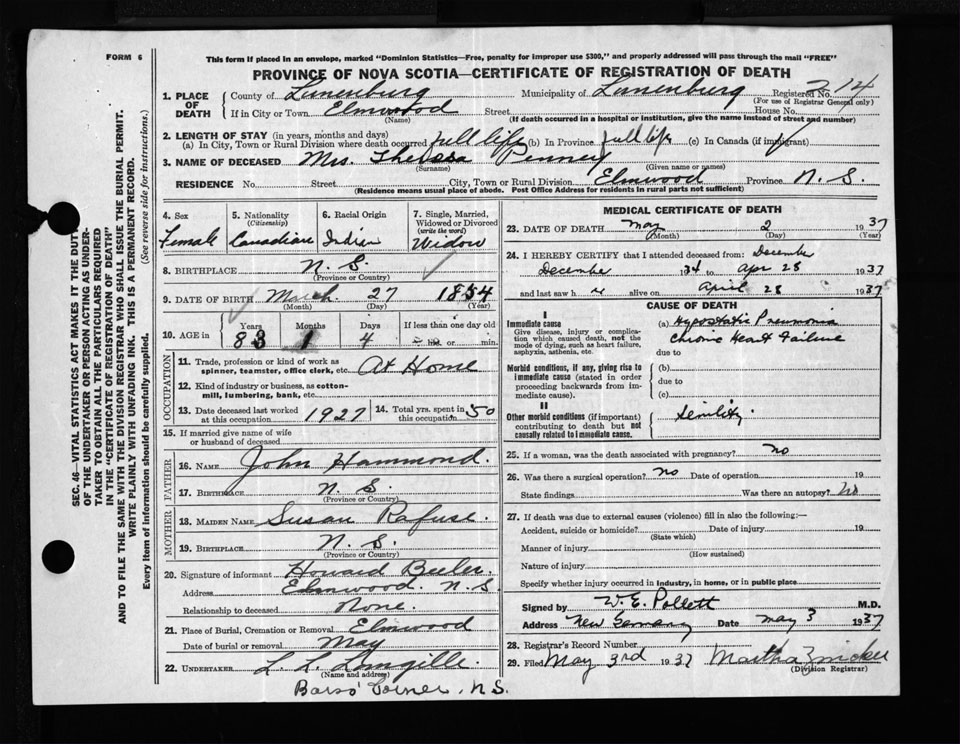 FORM 6
This form if placed in an envelope, marked "Dominion Statistics—Free, penalty for improper use $300," and properly addressed will pass through the mail "FREE"
PROVINCE OF NOVA SCOTIA—CERTIFICATE OF REGISTRATION OF DEATH
1. PLACE OF DEATH
County of Lunenburg Municipality of Lunenburg Registered No. 714
(For use of Registrar General only)
If in City or Town Elmwood Street House No.
(Name) (If death occurred in a hospital or institution, give the name instead of street and number)
2. LENGTH OF STAY (in years, months and days)
(a) In City, Town or Rural Division where death occurred full life (b) In Province full life (c) In Canada (if immigrant)
3. NAME OF DECEASED Mrs. Theressa Penney
(Surname) (Given name or names)
RESIDENCE No. Street City, Town or Rural Division Elmwood Province N. S.
(Residence means usual place of abode. Post Office Address for residents in rural parts not sufficient)
4. Sex Female
5. Nationality (Citizenship) Canadian
6. Racial Origin Indian
7. Single, Married, Widowed or Divorced (write the word) Widow
8. BIRTHPLACE N. S.
(Province or Country)
9. DATE OF BIRTH March 27 1854
(Month) (Day) (Year)
10. AGE in Years 83 Months 1 Days 4 If less than one day old hrs. or min.
OCCUPATION
11. Trade, profession or kind of work as spinner, teamster, office clerk, etc. At Home
12. Kind of industry or business, as cotton-mill, lumbering, bank, etc.
13. Date deceased last worked at this occupation 1927
14. Total yrs. spent in this occupation 50
15. If married give name of wife or husband of deceased
FATHER
16. NAME John Hammond.
17. BIRTHPLACE N. S.
(Province or Country)
MOTHER
18. MAIDEN NAME Susan Rafuse.
19. BIRTHPLACE N. S.
(Province or Country)
20. Signature of informant Howard Beeler.
Address Elmwood N. S.
Relationship to deceased None.
21. Place of Burial, Cremation or Removal Elmwood
Date of burial or removal May
22. UNDERTAKER L. L. Langille.
(Name and address)
Barss' Corner, N.S.
MEDICAL CERTIFICATE OF DEATH
23. DATE OF DEATH May 2 1937
(Month) (Day) (Year)
24. I HEREBY CERTIFY that I attended deceased from: December
December 1934 to Apr 28 1937
and last saw h er alive on April 28 1937
CAUSE OF DEATH
I
Immediate cause
Give disease, injury or complication which caused death, not the mode of dying, such as heart failure, asphyxia, asthenia, etc.
(a) Hypostatic Pneumonia
Chronic Heart Failure
due to
Morbid conditions, if any, giving rise to immediate cause (stated in order proceeding backwards from immediate cause).
(b)
due to
(c)
II
Other morbid conditions (if important) contributing to death but not causally related to immediate cause.
Senility
25. If a woman, was the death associated with pregnancy? no
26. Was there a surgical operation? no Date of operation 19
State findings Was there an autopsy? no
27. If death was due to external causes (violence) fill in also the following:—
Accident, suicide or homicide? Date of injury 19
(State which)
Manner of injury
(How sustained)
Nature of injury
Specify whether injury occurred in industry, in home, or in public place
Signed by W. E. Pollett M.D.
Address New Germany Date May 3 1937
28. Registrar's Record Number
29. Filed May 3rd 1937 Martha Zwicker
(Division Registrar)
SEC. 46—VITAL STATISTICS ACT MAKES IT THE DUTY
OF THE UNDERTAKER OR PERSON ACTING AS UNDER-
TAKER TO OBTAIN ALL THE PARTICULARS REQUIRED
IN THE "CERTIFICATE OF REGISTRATION OF DEATH"
AND TO FILE THE SAME WITH THE DIVISION REGISTRAR WHO SHALL ISSUE THE BURIAL PERMIT.
WRITE PLAINLY WITH UNFADING INK. THIS IS A PERMANENT RECORD.
Every item of information should be carefully supplied. (See reverse side for instructions.)